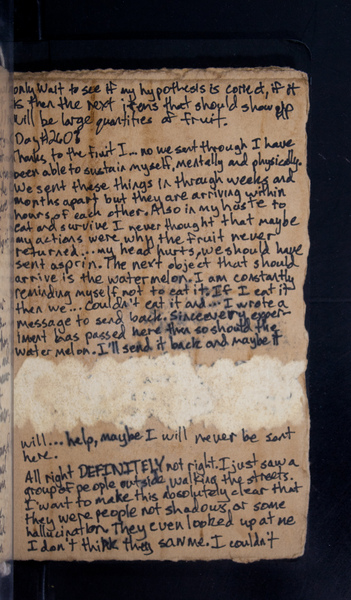 only wait to see if my hypothesis is correct, if it
is then the next items that should show up
will be large quantities of fruit.
Day #2608
Thanks to the fruit I... no we sent through I have
been able to sustain myself, mentally and physically.
We sent these things in through weeks and
months apart but they are arriving within
hours of each other. Also in my haste to
eat and survive I never thought that maybe
my actions were why the fruit never
returned... my head hurts, we should have
sent asprin. The next object that should
arrive is the watermelon. I am constantly
reminding myself not to eat it. If I eat it
then we... couldn't eat it and... I wrote a
message to send back. Since every exper-
iment has passed here then so should the
water melon. I'll send it back and maybe it
will... help, maybe I will never be sent
here.
All right DEFINITELY not right. I just saw a
group of people outside, walking the streets.
I want to make this absolutely clear that
they were people not shadows, or some
hallucination. They even looked up at me
I don't think they saw me. I couldn't